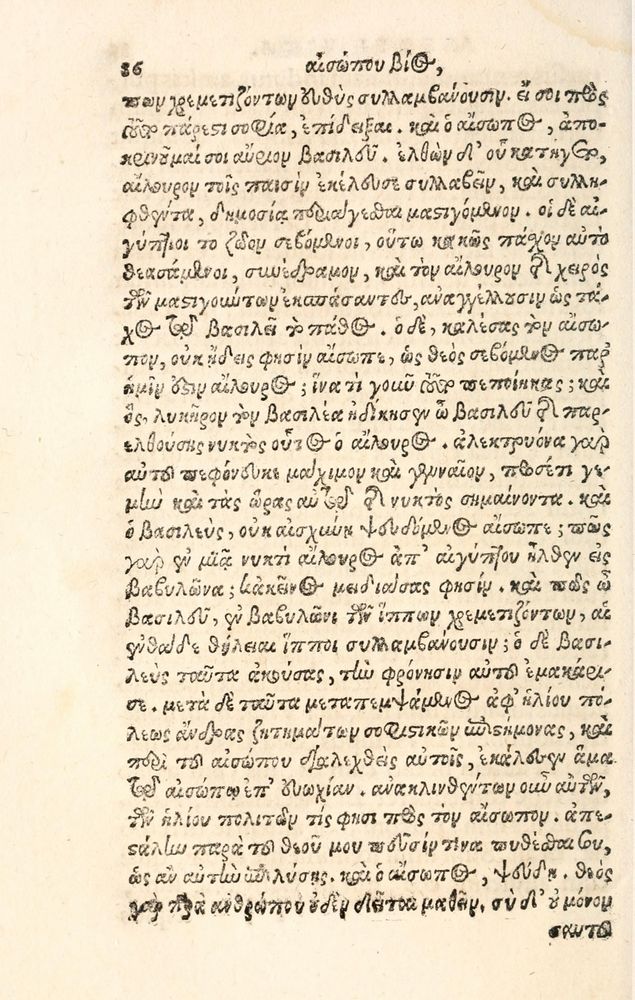 86 αἰσώπου βίος,
πων χρεμετιζόντων εὐθὺς συλλαμβάνουσιν. εἴ σοι πρὸς
τοῦτο πάρεστι σοφία, ἐπίδειξαι. καὶ ὁ αἴσωπος, ἀπο-
κρινοῦμαί σοι αὔριον βασιλεῦ. ἐλθὼν δ' οὗ κατῆγεν,
αἴλουρον τοῖς παισὶν ἐκέλευσε συλλαβεῖν, καὶ συλλη-
φθέντα, δημοσίᾳ περιάγεσθαι μαστιγόμενον. οἱ δὲ αἰ-
γύπτιοι τὸ ζῶον σεβόμενοι, οὕτω κακῶς πάσχον αὐτὸ
θεασάμενοι, συνέδραμον, καὶ τὸν αἴλουρον ἐκ χειρὸς
τῶν μαστιγούντων ἐκσπάσαντες, ἀναγγέλλουσιν ὡς τά-
χος τῷ βασιλεῖ τὸ πάθος. ὁ δὲ, καλέσας τὸν αἴσω-
πον, οὐκ ᾔδεις φησὶν αἴσωπε, ὡς θεὸς σεβόμενος παρ'
ἡμῖν ἐστιν αἴλουρος; ἵνα τί γοῦν τοῦτο πεποίηκας; καὶ
ὃς, λυκῆρον τὸν βασιλέα ἠδίκησεν ὦ βασιλεῦ τῆς παρ-
ελθούσης νυκτὸς οὗτος ὁ αἴλουρος. ἀλεκτρυόνα γὰρ
αὐτοῦ πεφόνευκε μάχιμον καὶ γενναῖον, προσέτι γε
μὴν καὶ τὰς ὥρας αὐτῷ τῆς νυκτὸς σημαίνοντα. καὶ
ὁ βασιλεὺς, οὐκ αἰσχύνῃ ψευδόμενος αἴσωπε; πῶς
γὰρ ἐν μιᾷ νυκτὶ αἴλουρος ἀπ' αἰγύπτου ἦλθεν εἰς
βαβυλῶνα; κἀκεῖνος μειδιάσας φησίν. καὶ πῶς ὦ
βασιλεῦ, ἐν βαβυλῶνι τῶν ἵππων χρεμετιζόντων, αἱ
ἐνθάδε θήλειαι ἵπποι συλλαμβάνουσιν; ὁ δὲ βασι-
λεὺς ταῦτα ἀκούσας, τὴν φρόνησιν αὐτοῦ ἐμακάρι-
σε. μετὰ δὲ ταῦτα μεταπεμψάμενος ἀφ' ἡλίου πό-
λεως ἄνδρας ζητημάτων σοφιστικῶν ἐπιστήμονας, καὶ
περὶ τοῦ αἰσώπου διαλεχθεὶς αὐτοῖς, ἐκάλεσεν ἅμα
τῷ αἰσώπῳ ἐπ' εὐωχίαν. ἀνακλινθέντων οὖν αὐτῶν,
τῶν ἡλίου πολιτῶν τίς φησι πρὸς τὸν αἴσωπον. ἀπε-
στάλην παρὰ τοῦ θεοῦ μου πεῦσίν τινα πυθέσθαι σου,
ὡς ἂν αὐτὴν ἐπιλύσῃς. καὶ ὁ αἴσωπος, ψεύδῃ. θεὸς
γὰρ παρὰ ἀνθρώπου οὐδὲν δεῖται μαθεῖν. σὺ δ' οὐ μόνον
σαυτοῦ